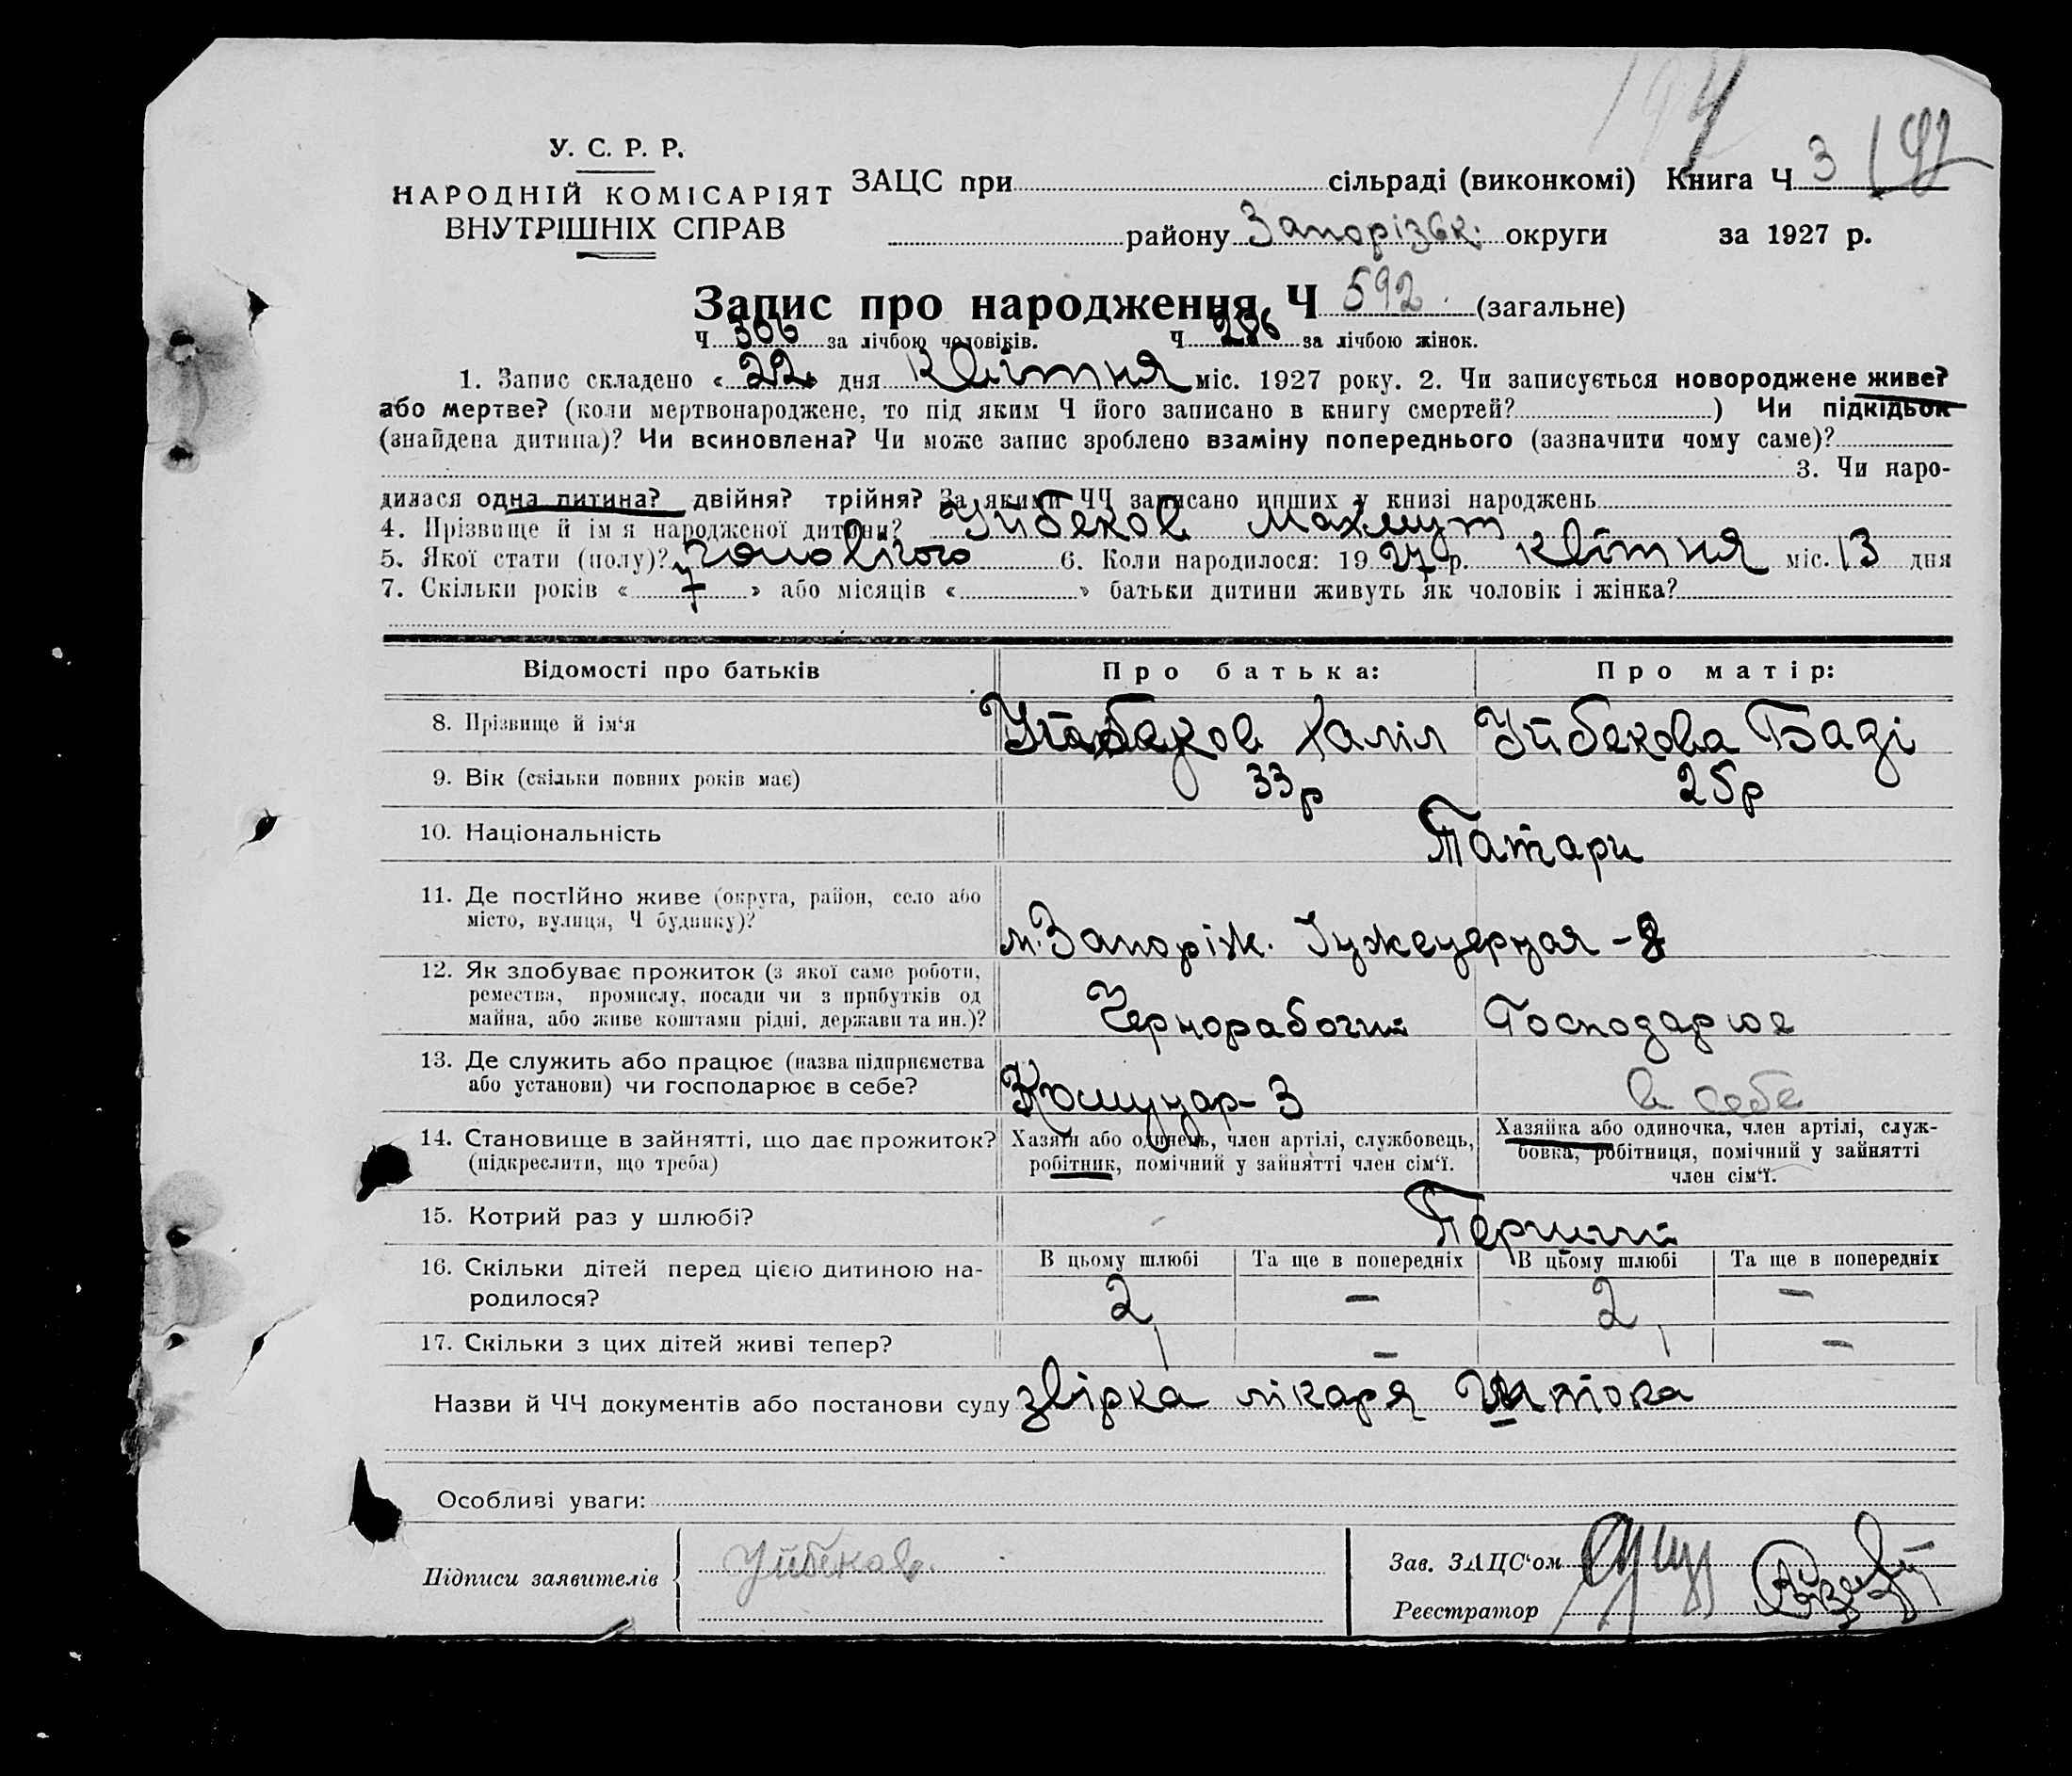 197
У. С. Р. Р.
НАРОДНІЙ КОМІСАРІЯТ
ВНУТРІШНІХ СПРАВ
ЗАЦС при сільраді (виконкомі) Книга Ч 3 192
району Запорізьк. округи за 1927 р.
Запис про народження Ч 592 (загальне)
Ч 306 за лічбою чоловіків. Ч 286 за лічбою жінок.
1. Запис складено «22» дня квітня міс. 1927 року. 2. Чи записується новороджене живе?
або мертве? (коли мертвонароджене, то під яким Ч його записано в книгу смертей? ) Чи підкідьок
(знайдена дитина)? Чи всиновлена? Чи може запис зроблено взаміну попереднього (зазначити чому саме)?
3. Чи наро-
дилася одна дитина? двійня? трійня? За якими ЧЧ записано инших у книзі народжень
4. Прізвище й ім я народженої дитини? Уйбеков Махмут
5. Якої стати (полу)? чоловічого 6. Коли народилося: 1927 р. квітня міс. 13 дня
7. Скільки років « 7 » або місяців « » батьки дитини живуть як чоловік і жінка?
Відомості про батьків Про батька: Про матір:
8. Прізвище й ім'я Уйбеков Халіл Уйбекова Баді
9. Вік (скільки повних років має) 33р 25р
10. Національність Татари
11. Де постійно живе (округа, район, село або
місто, вулиця, Ч будинку)? м. Запоріж.
12. Як здобуває прожиток (з якої саме роботи,
ремества, промислу, посади чи з прибутків од
майна, або живе коштами рідні, держави та ин.)? Чернорабочий Господарює
13. Де служить або працює (назва підприємства
або установи) чи господарює в себе? Комунар-3 в себе
14. Становище в зайнятті, що дає прожиток?
(підкреслити, що треба)
Хазяїн або одинець, член артілі, службовець,
робітник, помічний у зайнятті член сім'ї.
Хазяйка або одиночка, член артілі, служ-
бовка, робітниця, помічний у зайнятті
член сім'ї.
15. Котрий раз у шлюбі? Перший
16. Скільки дітей перед цією дитиною на-
родилося?
В цьому шлюбі Та ще в попередніх В цьому шлюбі Та ще в попередніх
2 – 2 –
17. Скільки з цих дітей живі тепер? 1 – 1 –
Назви й ЧЧ документів або постанови суду звірка лікаря
Особливі уваги:
Підписи заявителів Уйбеков.
Зав. ЗАЦС'ом
Реєстратор